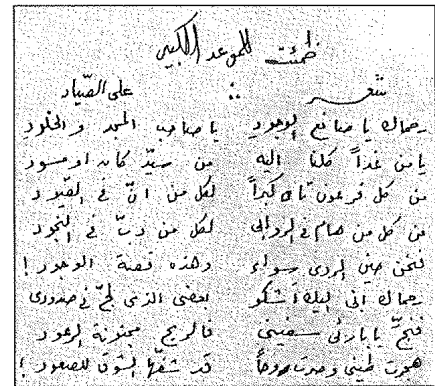 ظمئت للموعد الكبير
شعر : على الصّياد
رحماك يا صانع الوجود يا صاحب المجد والخلود
يا من غذاً كلنا اليه من سيّد كان او مسود
من كل فرعون تاه كبراً لكل من انّ فى القيود
من كل من هام فى الروابى لكل من دبّ فى النجود
فنحن حتى الردى سواء وهذه قصة الوجود !
رحماك انى اليك أشكو بعض الذى لجّ فى صدورى
فنجّ يا بارئى سفينى فالريح مجنونة الرعود
هجرت طينى وصرت روحاً قد شفّها الشوق للصعود !